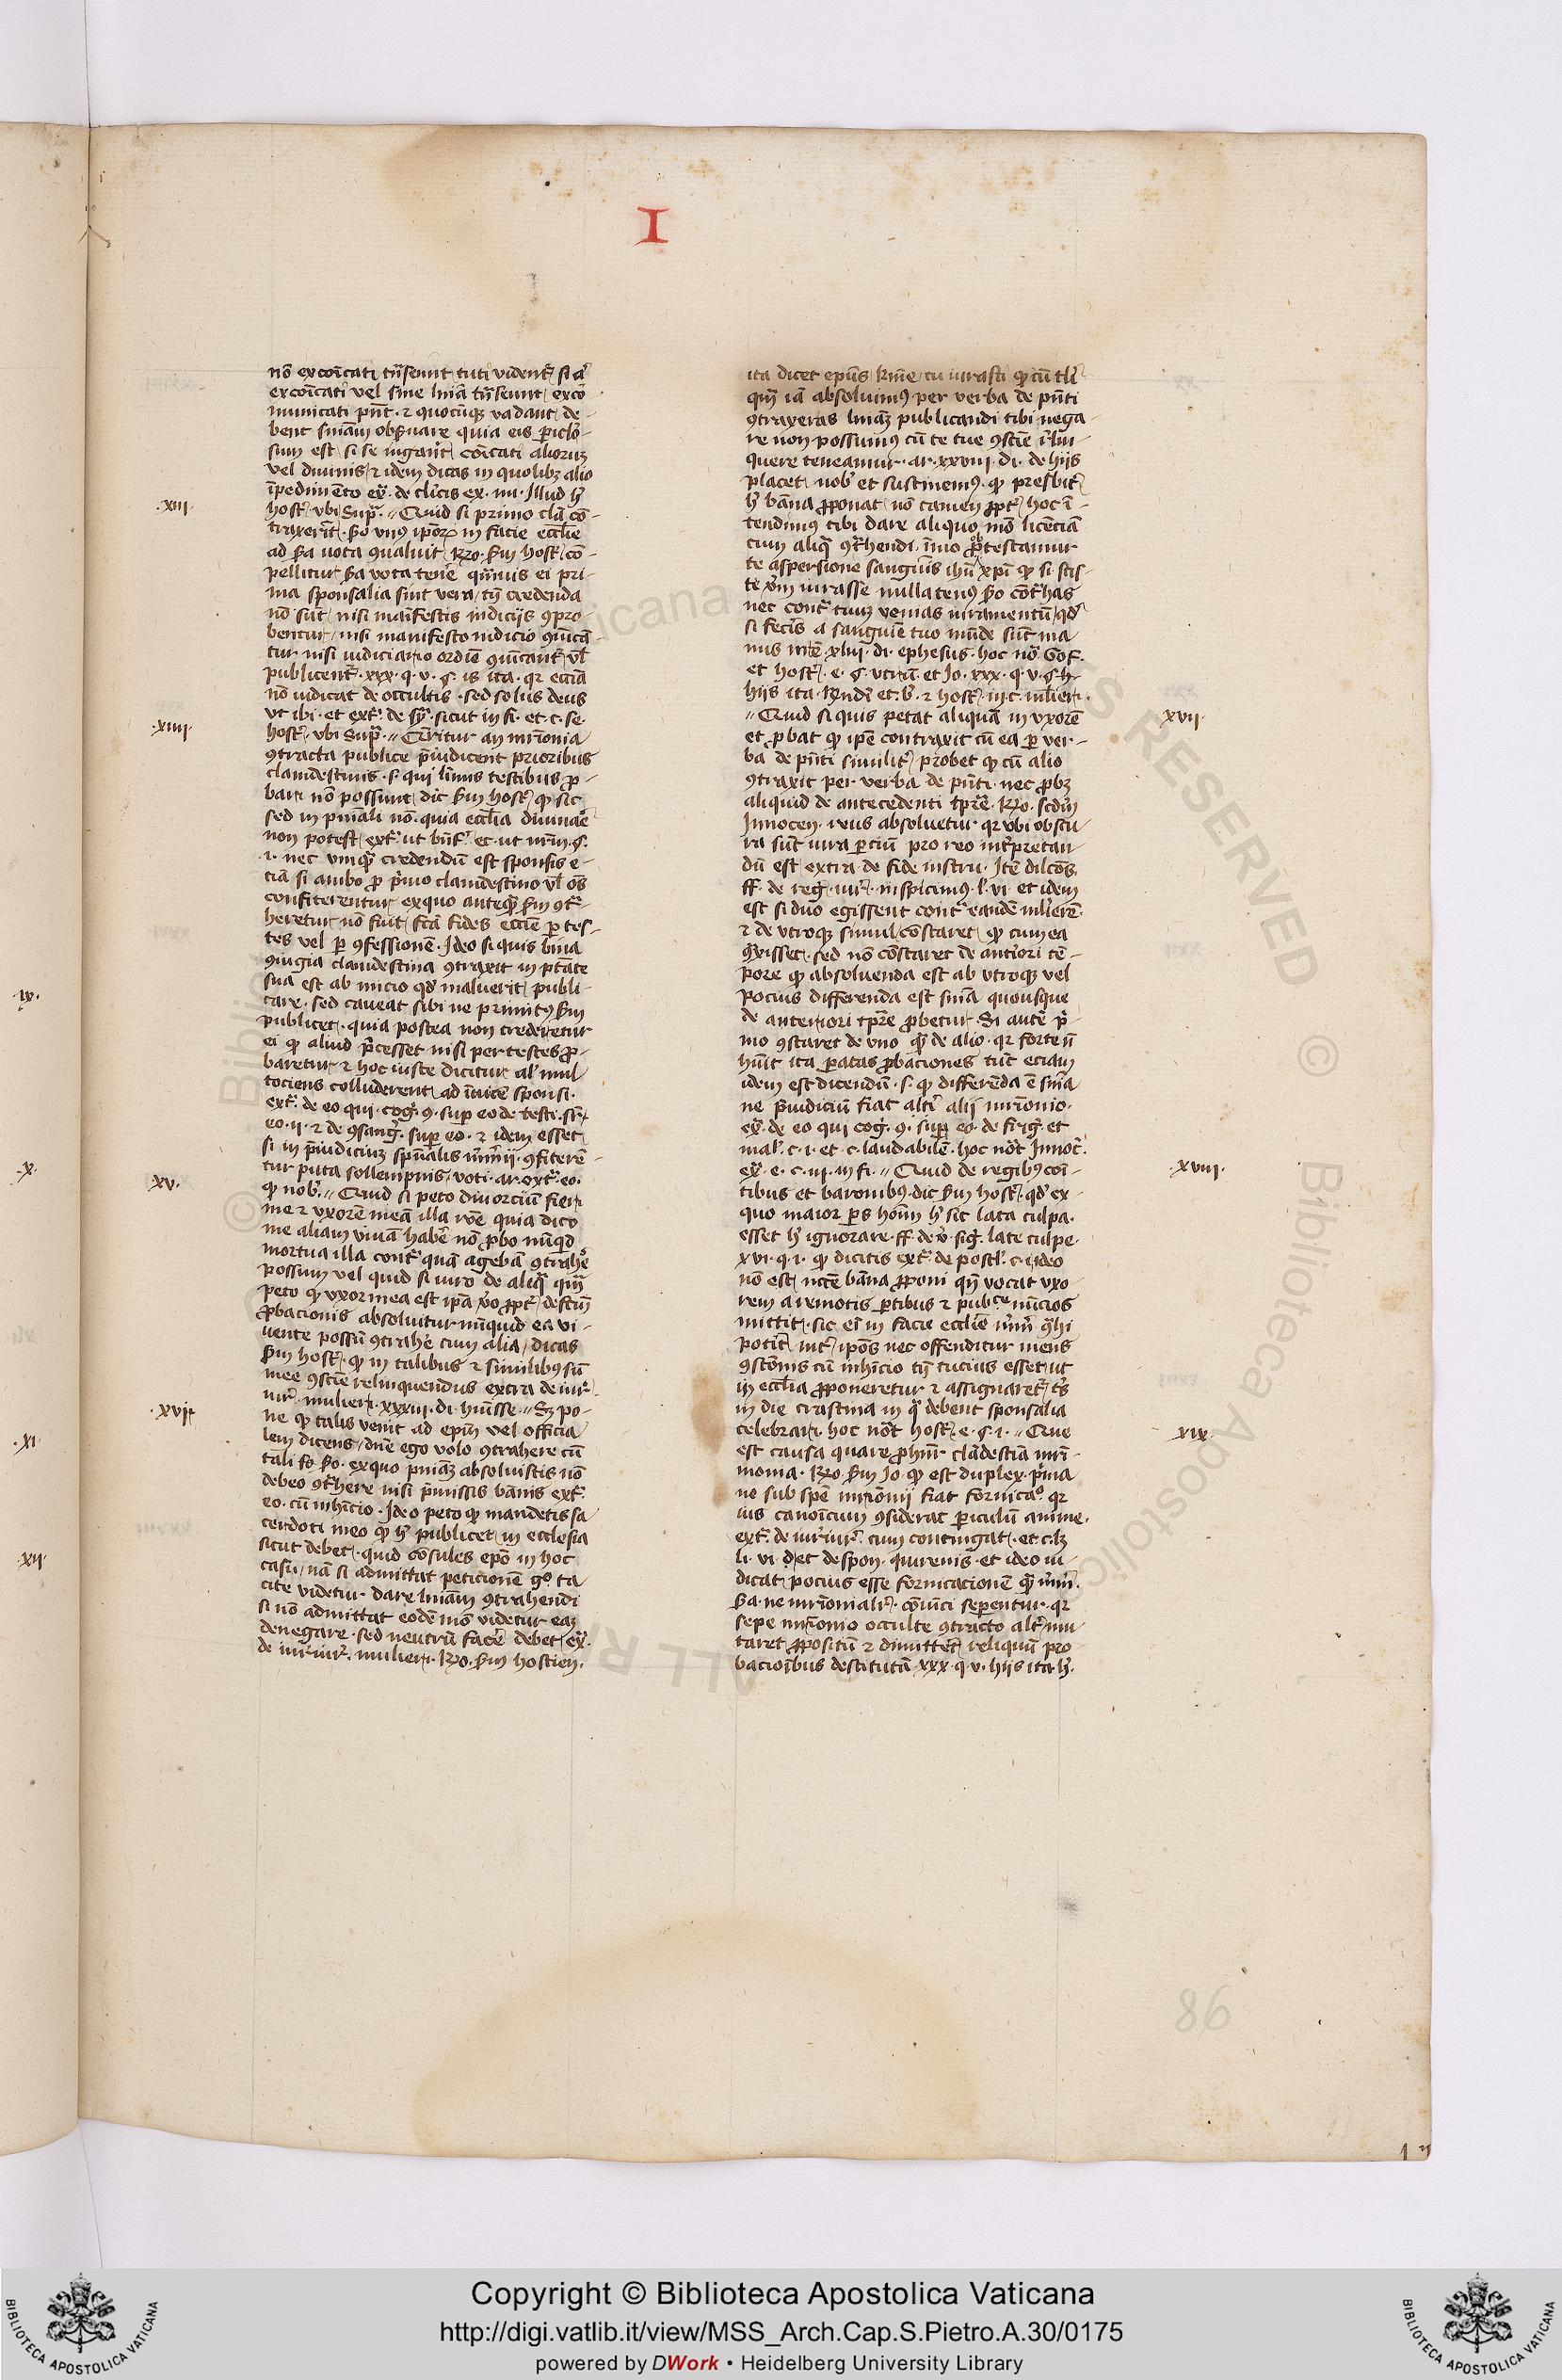 I
nō excoīcati tn̄seunt tuti vident᷒ si aᷓ
excoīcati vel sine lniā tn̄seunt exco
municati pn̄t · ⁊ quocūqꝫ vadant de-
bent sniam obẜuare quia eis ꝑiclo-
sum est si se ingerāt coīcati alioruꝫ
vel diuinis ⁊ idem dicas in quolibꝫ alio
īpedimēto
.xii. host᷒ vbi Supᷓ · Quid si primo clā cō-
traxerūt
ad
pellitur ẜa vota tene quīuis ei pri-
ma sponsalia sint vera tn̄ credenda
nō sūt nisi maīfestis indicijs ꝯpro-
bentur nisi manifesto indicio
tur nisi iudiciario ordīe
publicent᷒ · xxx · q · v · § · is ita · qr eccīa
nō iudicat de occultis · sed solus deus
vt ibi · et
.xiiii. host᷒ vbi Supᷓ · Queritur an mr̄ionia
ꝯtracta publice p̄iudicent prioribus
clandestinis · s · qui l̄imis testibus ꝓ-
bari nō possunt dic ẜm host᷒ ꝙ sic
sed in pniāli nō · quia eccl̄ia
non potest
·i· nec vmqᷓ credendū est sponsis e-
tiā si ambo ꝓ pᷓmo clamdestino vl̄ oēs
confiterentur exquo anteqᷓ ẜm ꝯtᷓ-
heretur nō fuit fc̄a fides eccīe ꝑ tes-
tes vel ꝑ ꝯfessionē · Ideo si quis bina
ꝯiugia clamdestina ꝯtraxit in ptāte
sua est ab inicio qd maluerit publi-
care · sed caueat sibi ne primitꝰ ẜm
publicet · quia postea non crederetur
ei ꝙ aliud pᷓcesset nisi per testes ꝓ-
baretur ⁊ hoc iuste dicitur al' mul
tociens colluderent ad īuicē sponsi ·
ext᷒ · de eo qui · cog · ꝯ · sup eo de testi ·
eo · ii · ⁊ de ꝯsang · sup eo · ⁊ idem esset
si in p̄iudiciuꝫ
tur puta sollempnis voti · ar · ext᷒ · eo ·
.xv. ꝙ nob᷒ · Quid si peto diuorciū fieri
me ⁊ vxorē meā illa
me aliam viuā habē nō ꝓbo nūqd
mortua illa contᷓ quā agebā ꝯtrahē
possum vel quid si iuro de aliqᷓ quā
peto ꝙ vxor mea est ip̄a
ꝓbacionis absoluitur nūquid ea vi-
uente possū ꝯtrahē cum alia dicas
ẜm host᷒ · ꝙ in talibus ⁊ similibꝰ sū
mee ꝯscīe relinquendus extra de iur᷒
.xvi. iur᷒ · mulieri · xxxiii · di · · Sꝫ po-
ne ꝙ talis venit ad epm̄ vel officia
lem dicens dn̄e ego volo ꝯtrahere cū
tali · exquo absoluistis nō
debeo ꝯtᷓhere nisi p̄missis bānis ext᷒ ·
eo · cū inhīcio · Ideo peto ꝙ mandetis sa
cerdoti meo ꝙ publicet in ecclesia
sicut debet · quid cōsules epō in hoc
casu nā si admittat peticionē g° ta
cite videtur dare ꝯtrahendi
si nō admittat eodē mō videtur eaꝫ
denegare · sed neutrū facē debet ·
de iur᷒iur᷒ · mulieri · ẜm hostien ·
ita dicet epūs tu iurasti ꝙ cū
iā absoluimꝰ per verba de pn̄ti
ꝯtraxeras publicandi tibi nega-
re non possumꝰ cū te tue ꝯscīe
quere teneamur · ar · xxviii · di · de hijs
placet nob᷒ et sustinemꝰ · ꝙ presbit᷒
bāna ꝓponat nō tamen ꝓpt᷒ hoc ī-
tendimꝰ tibi dare aliquo mō licēciā
cum aliqᷓ ꝯtᷓhendi · īmo ꝓtestamur
te aspersione sanguīs ihū xpī ꝙ si scis
te iurasse nullatenꝰ ẜo cōtᷓhas
nec contᷓ tuum venias iuramentū qd
si fecis a sanguīe tuo mūde sūt ma
nus xliii · di · ephesus · hoc nō Gof.
et host᷒ · e · § · vtrū · et Io · xxx · q · v · §
hijs ita · et · ⁊ host᷒ · in c · mulieri ·
Quid si quis petat aliquā in vxorē .xvii.
et ꝓbat ꝙ ipē contraxit cū ea ꝑ ver-
ba de pn̄ti similit᷒ probet ꝙ cū alio
ꝯtraxit per verba de pn̄ti · nec ꝓbꝫ
aliquid de antecedenti tpr̄e · scdm̄
Innocen · reus absoluetur qr vbi obscu
ra sūt iura ꝑciū pro reo int᷒pretan
dū est extra de fide instru · Itē
ff · de reg · iur᷒ · inspicimus · et idem
est si duo egissent contᷓ eandē
⁊ de vtroqꝫ simul cōstaret ꝙ cum ea
sed nō cōstaret de antiori tē-
pore ꝙ absoluenda est ab vtroqꝫ vel
pocius differenda est snīa quousque
de anteriori tpr̄e ꝓbetur · Si autē pᷓ-
mo ꝯstaret de vno qᷓ de alio · qr forte n̄
hūit ita ꝑatas ꝓbaciones tūc eciam
idem est dicendū · s · ꝙ differēda ē snīa
ne p̄iudiciū fiat alti alij mr̄ionio ·
de eo qui cog · ꝯ · sup eo · de frig · et
mal᷒ · c · i · et · c · laudabilē · hoc nōt Innoc᷒ ·
e · c · iii · in fi · Quid de regibꝰ coī- .xviii.
tibus et baronibꝰ dic ẜm host᷒ · qd ex-
quo maior sic lata culpa ·
esset ignorare · ff · de · sig · late culpe ·
xvi · q · i · ꝙ dicitis ext᷒ · de postl᷒ · c · i · ideo
nō est bāna ꝓponi vocat vxo
rem a remotis ꝑtibus ⁊ pubce nūcios
mittit · sic ei in facie eccl̄ie
int᷒ ipōs nec offenditur mens
cū inhīcio tn̄ tucius esset ut
in eccl̄ia ꝓponeretur ⁊ assignaret᷒
in die crastina in qᷓ debent sponsalia
celebrari · hoc nōt host᷒ · e · § · i · Que .xix.
est causa quare clādestīa mr̄i-
monia · ẜm Io · ꝙ est duplex · pᷓma
ne sub spē mr̄ionij fiat fornicaᵒ · qr
ius canoīcum ꝯsiderat ꝑiculū anime ·
ext᷒ · de iur᷒iur᷒ · cum contingat · et c
li · vi · et despon · iuuenis · et ideo iu-
dicat pocius esse fornicacionē qᷓ
ẜa · ne mr̄ionialit᷒ · cōiūcti seꝑentur · qr
sepe mr̄ionio occulte ꝯtracto alt᷒ mu
taret ꝓpositū ⁊ dimittet reliquū pro
bacioībus destitutā · xxx · q · v · hijs ita
.ix.
.x.
.xi.
.xii.
86
Copyright © Biblioteca Apostolica Vaticana
http://digi.vatlib.it/view/MSS_Arch.Cap.S.Pietro.A.30/0175
powered by DWork • Heidelberg University Library
BIBLIOTECA APOSTOLICA VATICANA
BIBLIOTECA APOSTOLICA VATICANA